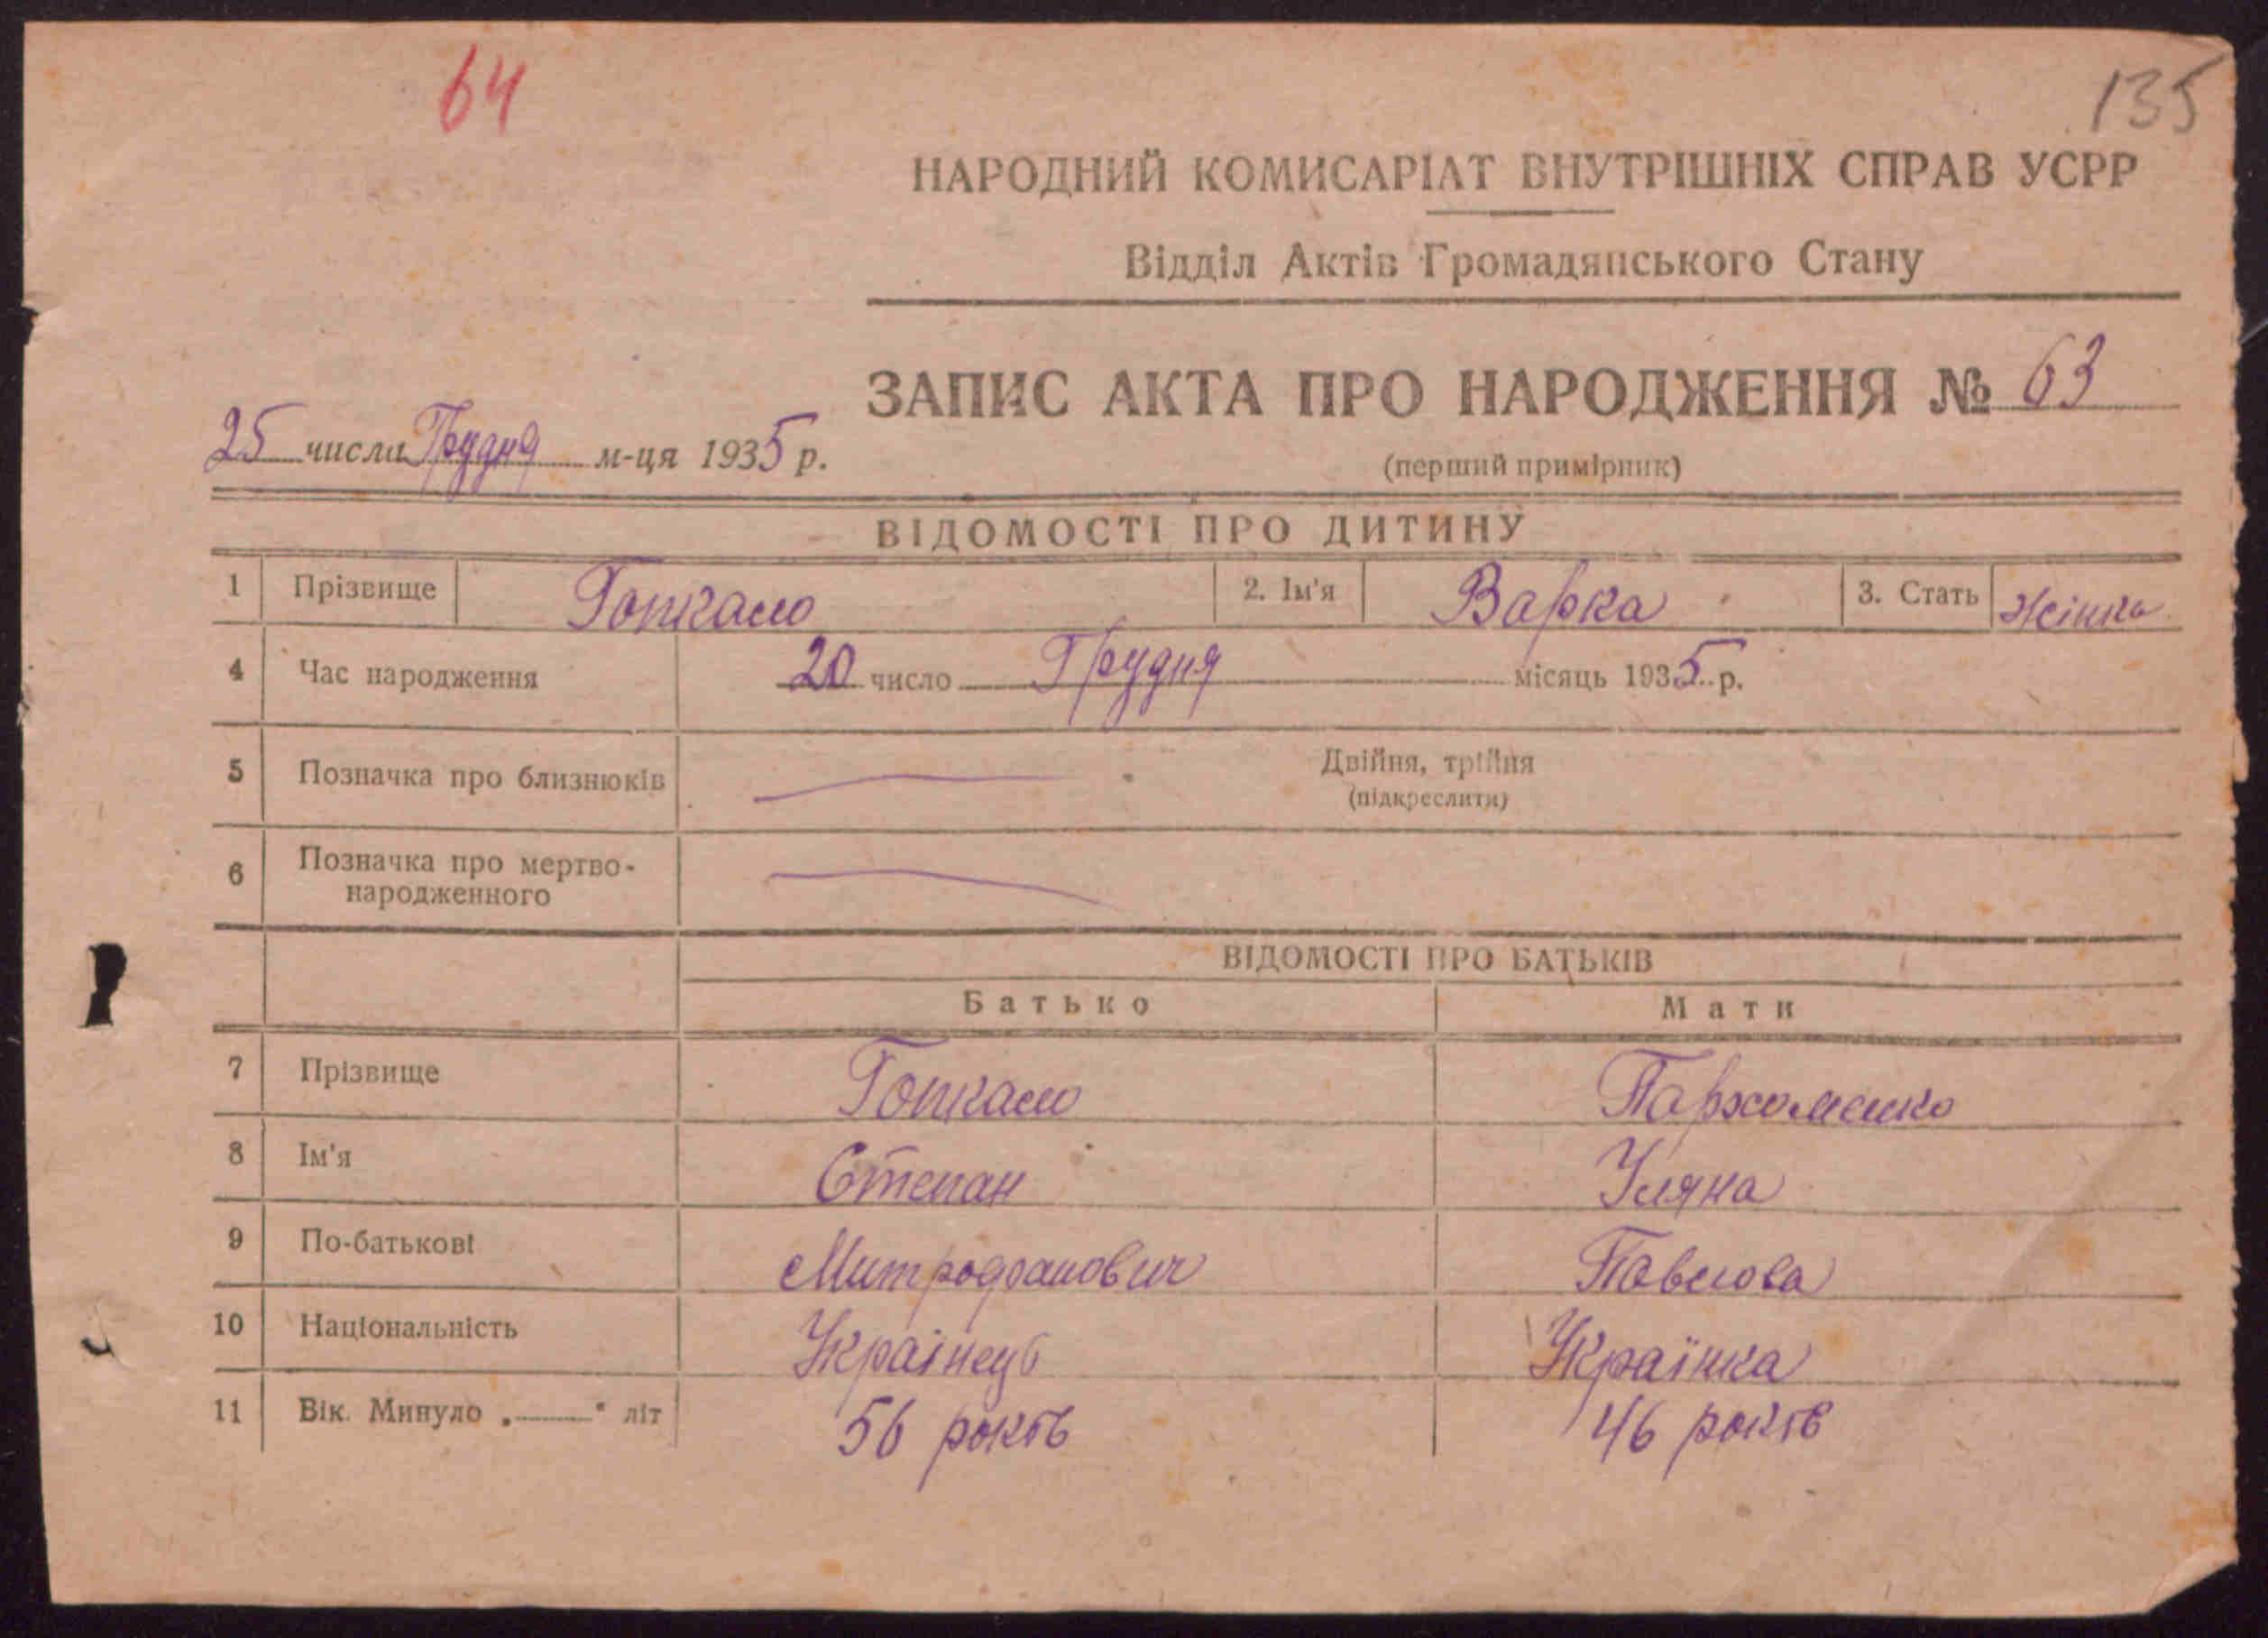 64
135
НАРОДНИЙ КОМИСАРІАТ ВНУТРІШНІХ СПРАВ УСРР
Відділ Актів Громадянського Стану
ЗАПИС АКТА ПРО НАРОДЖЕННЯ № 63
25 числа Грудня м-ця 1935 р.
(перший примірник)
ВІДОМОСТІ ПРО ДИТИНУ
1 Прізвище 2. Ім'я Варка 3. Стать Жінка
4 Час народження 20 число Грудня місяць 1935 р.
5 Позначка про близнюків Двійня, трійня
(підкреслити)
6 Позначка про мертво-
народженного
ВІДОМОСТІ ПРО БАТЬКІВ
Батько Мати
7 Прізвище Пархоменко
8 Ім'я Степан Уляна
9 По-батькові Митрофанович Павлова
10 Національність Українець Українка
11 Вік. Минуло „——" літ 56 років 46 років